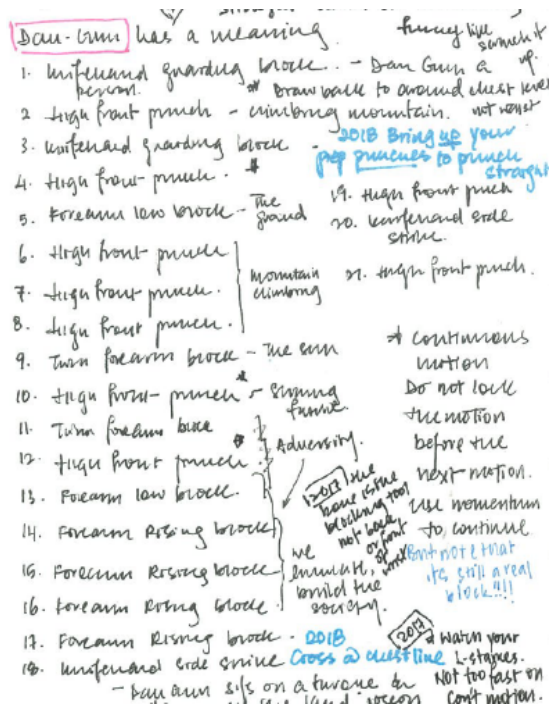 Dan-Gun has a meaning.
1. Knifehand guarding block.. - Dan Gun a person.
* Draw back to around chest level not waist
2 High front punch - climbing mountain.
3. Knifehand guarding block -
2018 Bring up your
prep punches to punch
straight
4. High front punch. *
5. Forearm low block - The ground
6. High front punch
7. High front punch.
8. High front punch.
mountain climbing
9. Twin forearm block - The sun
10. High front punch -
11. Twin forearm block
12. High front punch.
Adversity.
13. Forearm low block.
14. Forearm Rising block
15. Forearm Rising block
16. Forearm Rising block.
we
build the
society.
17. Forearm Rising block. - 2018
18. Knifehand side strike Cross @ chestline
- Dan Gun sits on a throne &
19. High front punch
20. Knifehand side
strike.
21. High front punch.
* continuous
motion
Do not lock
the motion
before the
next motion.
use momentum
to continue
But note that
its still a real
block!!!
2017 the
bone is the
blocking tool
not back
or front
of
2017 * Watch your
L-stances.
Not too fast on
con't motion.